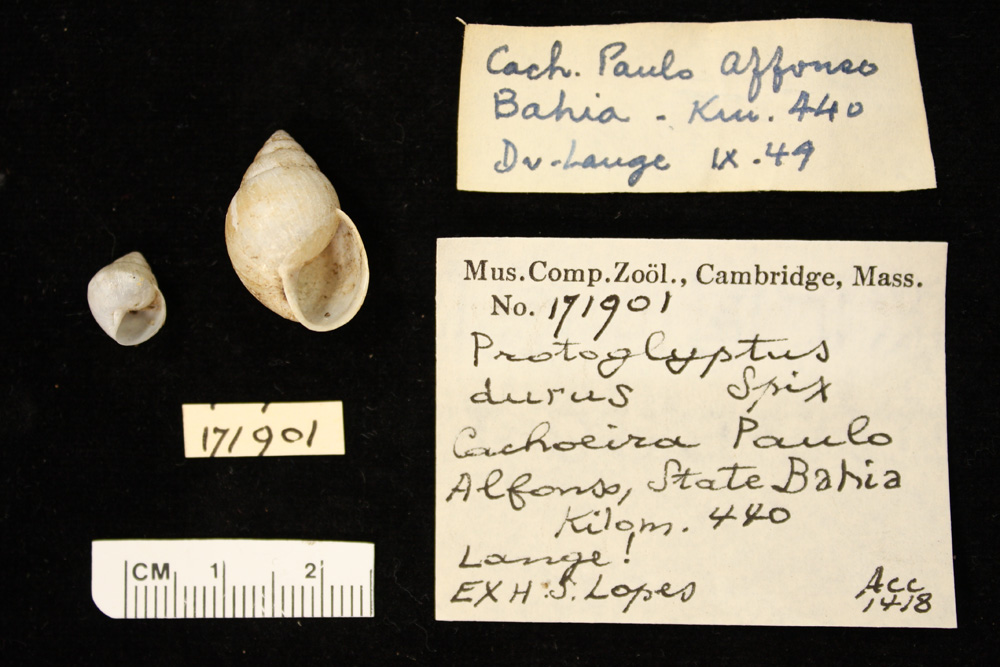 Cach. Paulo Affonso
Bahia - Km. 440
Dr. Lange IX.49
Mus.Comp.Zoöl., Cambridge, Mass.
No. 171901
Protoglyptus
durus Spix
Cachoeira Paulo
Alfonso, State Bahia
Kilom. 440
Lange!
EX H.S. Lopes
Acc
1418
171901
CM 1 2